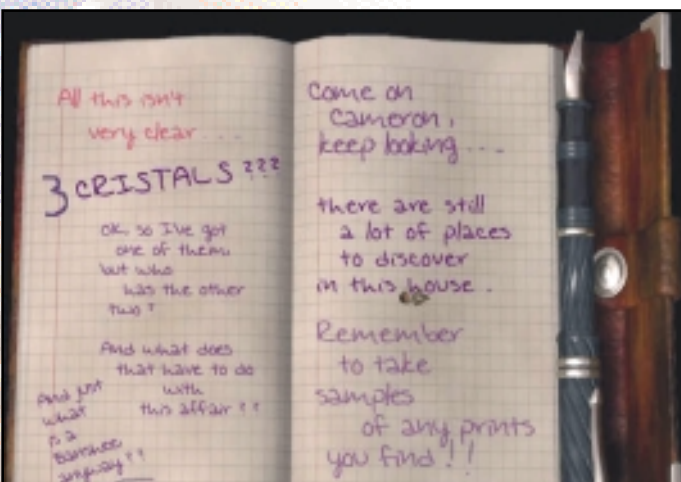 All this isn't
very clear...
3 CRISTALS ???
OK, so I've got
one of them,
but who
has the other
two?
And what does
that have to do
with
this affair ??
And just
what
is a
Banshee
anyway ??
Come on
Cameron,
keep looking...
there are still
a lot of places
to discover
in this house.
Remember
to take
samples
of any prints
you find !!